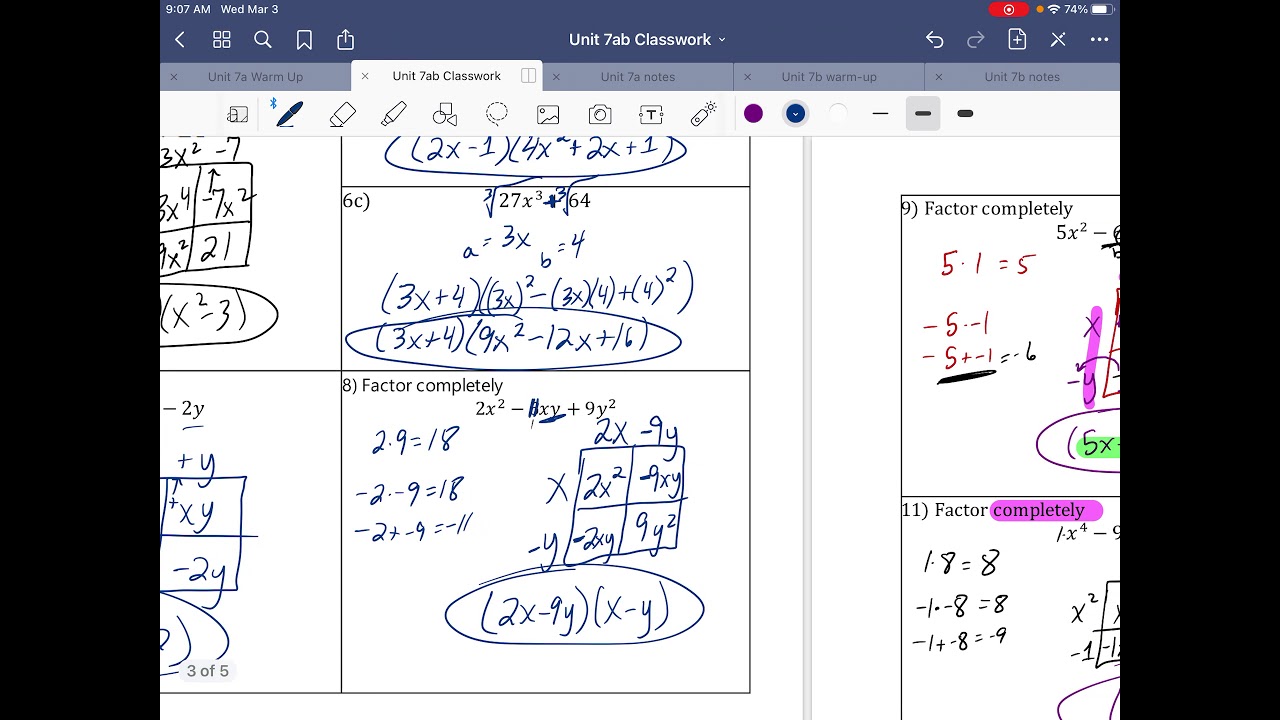 9:07 AM Wed Mar 3
74%
Unit 7ab Classwork
Unit 7a Warm Up
Unit 7ab Classwork
Unit 7a notes
Unit 7b warm-up
Unit 7b notes
3x² -7
3x⁴ -7x²
9x² 21
(x²-3)
- 2y
+y
+xy
-2y
3 of 5
(2x-1)(4x²+2x+1)
6c) ∛27x³ + ∛64
a = 3x b = 4
(3x+4)((3x)²-(3x)(4)+(4)²)
(3x+4)(9x²-12x+16)
8) Factor completely
2x² - 11xy + 9y²
2·9=18
-2·-9=18
-2+-9=-11
2x -9y
x 2x² -9xy
-y -2xy 9y²
(2x-9y)(x-y)
9) Factor completely
5x² -
5·1 = 5
-5·-1
-5+-1=-6
x
-y
(5x
11) Factor completely
1·x⁴ - 9
1·8=8
-1·-8=8
-1+-8=-9
x²
-1